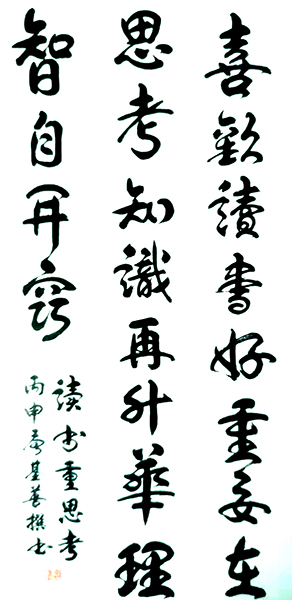 喜歡讀書好重要在
思考知識再升華理
智自開竅
讀書重思考
丙申基善撰書